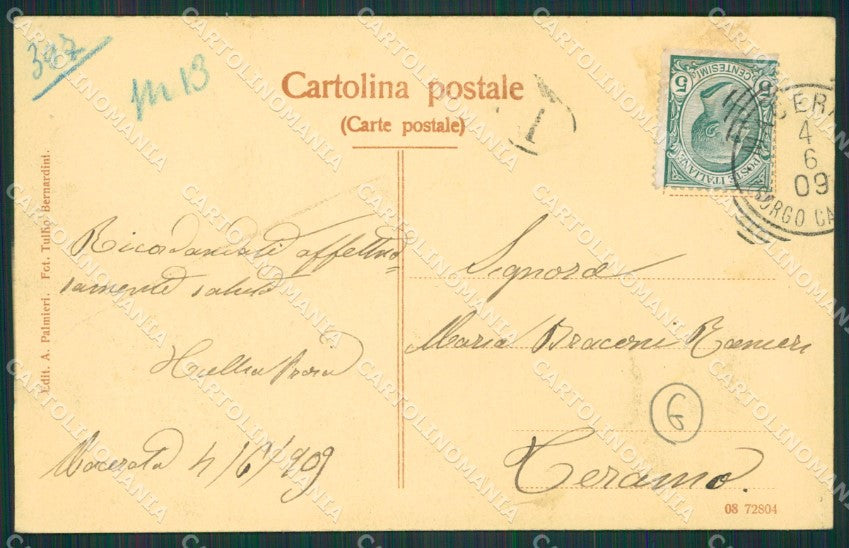 387
m 13
Cartolina postale
(Carte postale)
1
5 CENTESIMI 5
POSTE ITALIANE
CERA
4
6
09
BORGO CA
Edit. A. Palmieri. Fot. Tullio Bernardini.
Ricordandoti affettuo-
samente saluto
Macerata 4/6/909
Signora
Maria Braconi Ranieri
6
Teramo.
08 72804
CARTOLINOMANIA